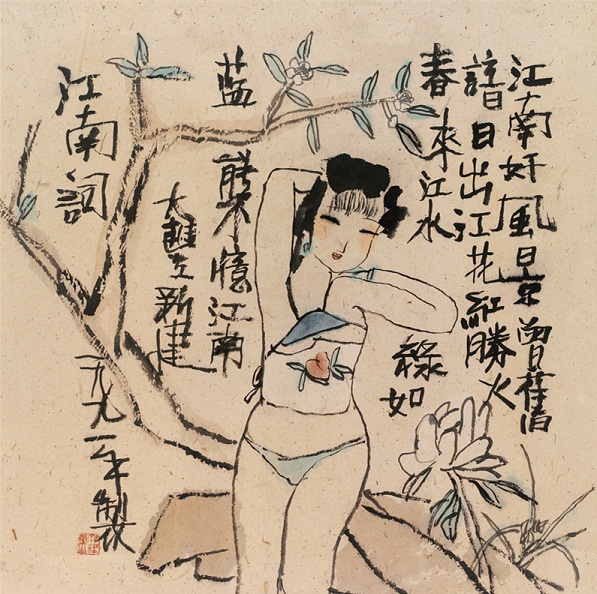 江南好風景曾舊
諳日出江花紅勝火
春來江水
綠如
蓝
能不憶江南
大豐朱新建
江南詞
一九九一年製